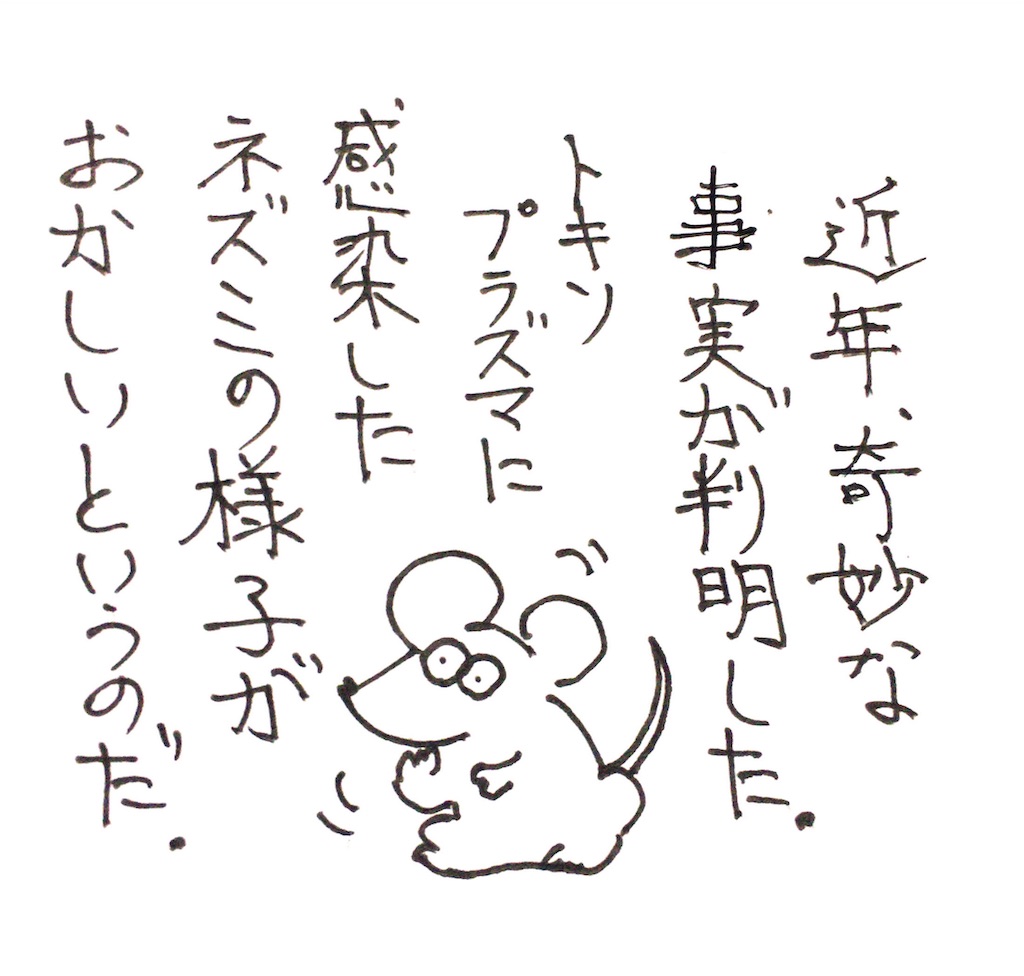 近年、奇妙な
事実が判明した.
トキソ
プラズマに
感染した
ネズミの様子が
おかしいというのだ.